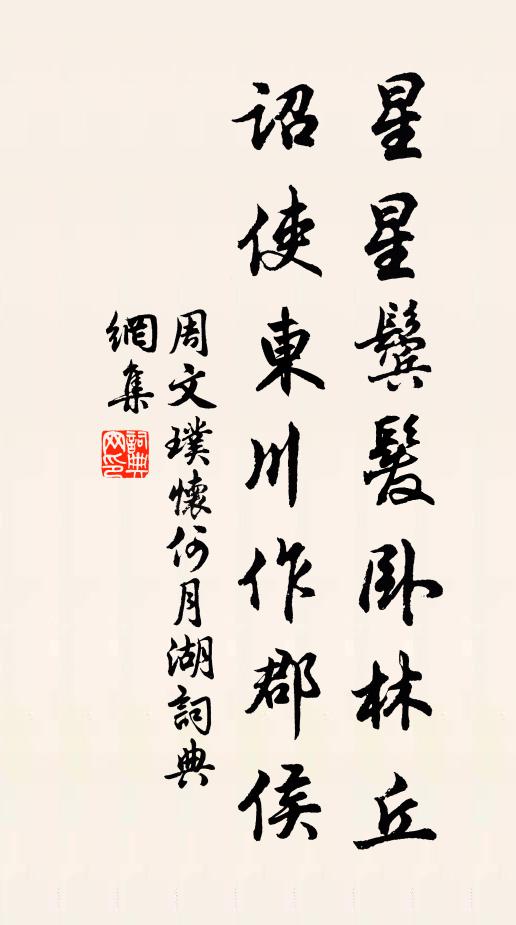 星星鬢髮卧林丘
詔使東川作郡侯
周文璞懷何月湖詞典
網集
詞典
网印